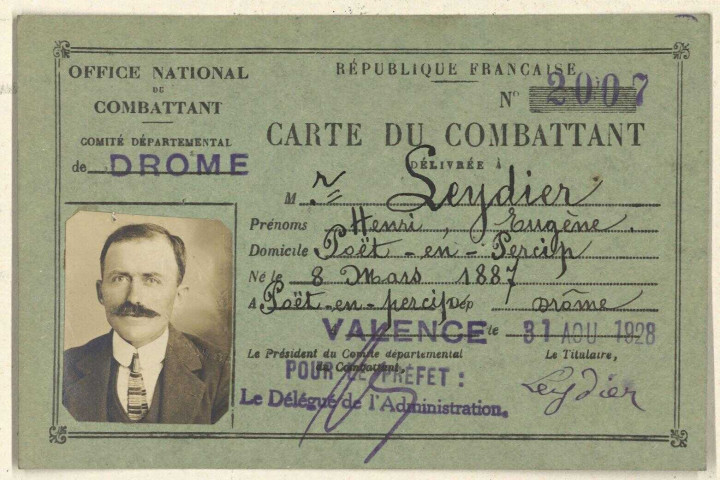 OFFICE NATIONAL
DU
COMBATTANT
COMITÉ DÉPARTEMENTAL
de DROME
RÉPUBLIQUE FRANÇAISE
N° 2007
CARTE DU COMBATTANT
DÉLIVRÉE À
M r Leydier
Prénoms Henri, Eugène.
Domicile Poët-en-Percip
Né le 8 Mars 1887
A Poët-en-percip Dép Drôme
VALENCE le 31 AOU 1928
Le Président du Comité départemental
du Combattant,
Le Titulaire,
POUR LE PRÉFET :
Leydier
Le Délégué de l'Administration.